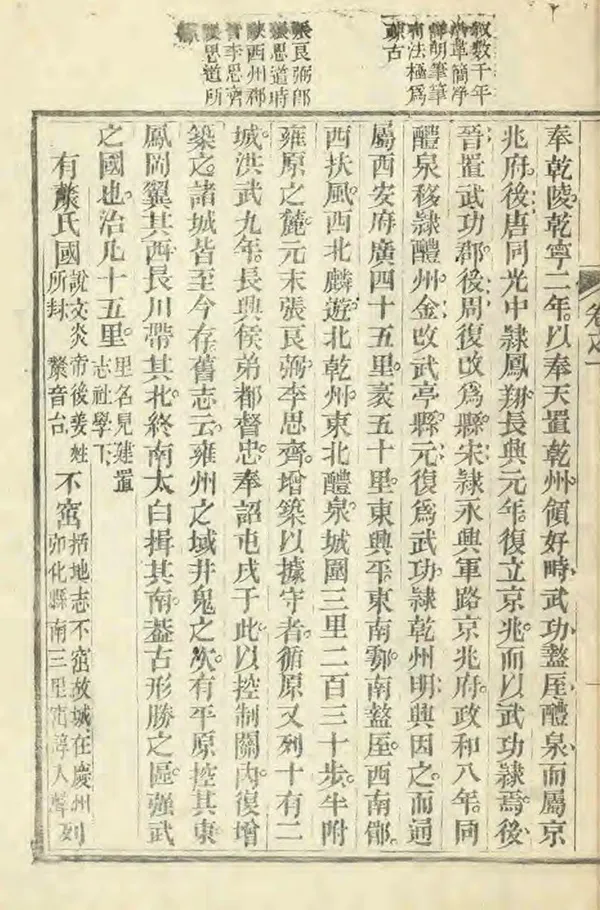 敘數千年
沿革簡淨
鮮朗筆筆
有法極爲
蒙古
張良弼卽
張思道時
陝西州郡
皆李思齊
張思道所
奉乾陵乾寧二年以奉天置乾州領好畤武功盩厔醴泉而屬京
兆府後唐同光中隸鳳翔長興元年復立京兆而以武功隸焉後
晉置武功郡後周復改爲縣宋隸永興軍路京兆府政和八年同
醴泉移隸醴州金改武亭縣元復爲武功隸乾州明興因之而通
屬西安府廣四十五里袤五十里東興平東南鄠南盩厔西南郿
西扶風西北麟遊北乾州東北醴泉城圍三里二百三十步半附
雍原之麓元末張良弼李思齊增築以據守者循原又列十有二
城洪武九年長興侯弟都督忠奉詔屯戍于此以控制關內復增
築之諸城皆至今存舊志云雍州之域井鬼之次有平原控其東
鳳岡翼其西長川帶其北終南太白揖其南蓋古形勝之區强武
之國也治凡十五里里名見建置志社學下
有斄氏國說文炎帝後姜姓所封斄音台不窋括地志不窋故城在慶州列化縣南三里窋諄人聲列